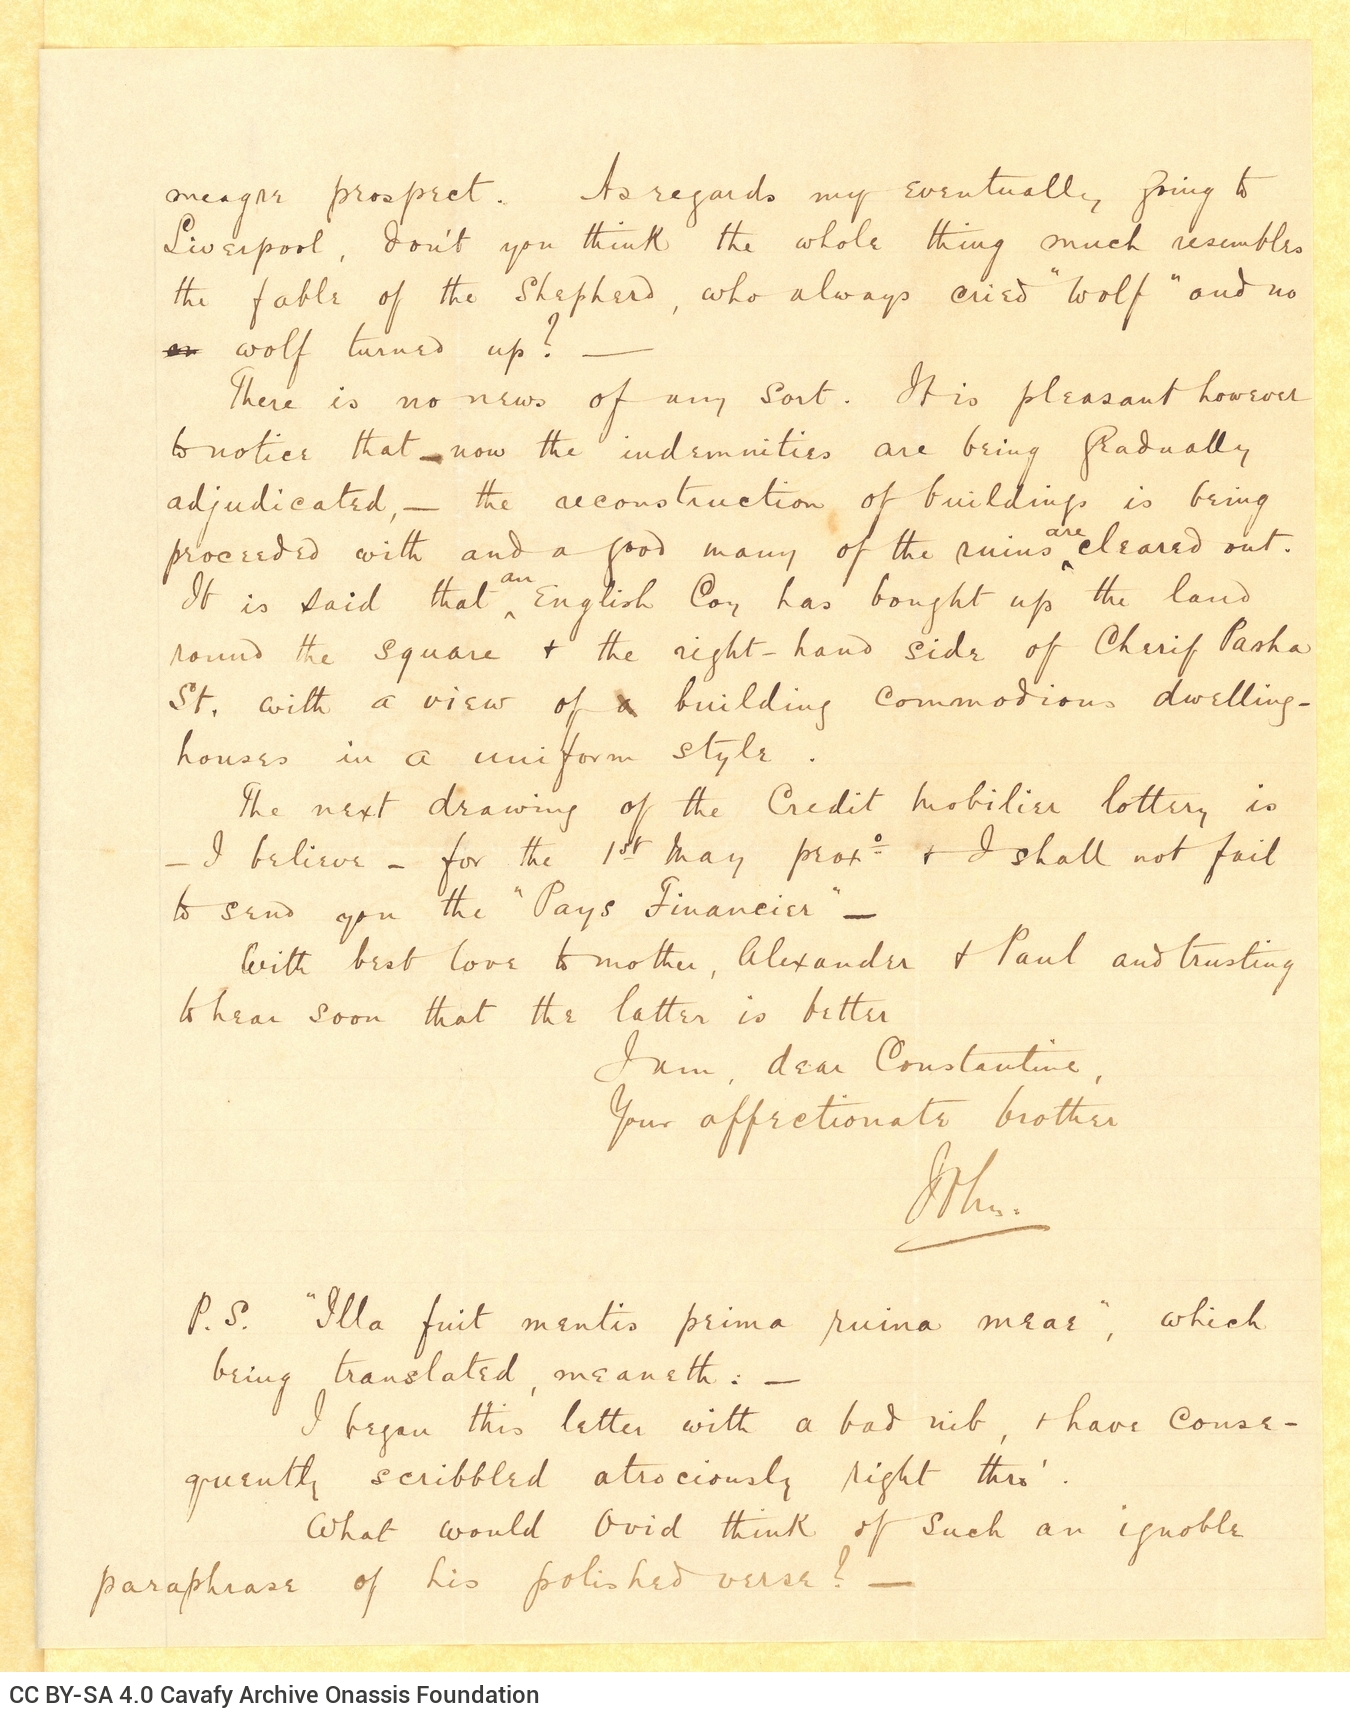 meagre prospect. As regards my eventually going to
Liverpool, don't you think the whole thing much resembles
the fable of the Shepherd, who always cried "Wolf" and no
wolf turned up? —
There is no news of any sort. It is pleasant however
to notice that – now the indemnities are being gradually
adjudicated, — the reconstruction of buildings is being
proceeded with and a good many of the ruins are cleared out.
It is said that an English Coy has bought up the land
round the square & the right-hand side of Cherif Pasha
St. with a view of building commodious dwelling-
houses in a uniform style.
The next drawing of the Credit Mobilier lottery is
– I believe – for the 1st May proxo & I shall not fail
to send you the "Pays Financier" —
With best love to mother, Alexander & Paul and trusting
to hear soon that the latter is better
I am, dear Constantine,
Your affectionate brother
John.
P.S. "Illa fuit mentis prima ruina meae", which
being translated, meaneth: —
I began this letter with a bad nib, & have conse-
quently scribbled atrociously right thro'.
What would Ovid think of such an ignoble
paraphrase of his polished verse? —
CC BY-SA 4.0 Cavafy Archive Onassis Foundation